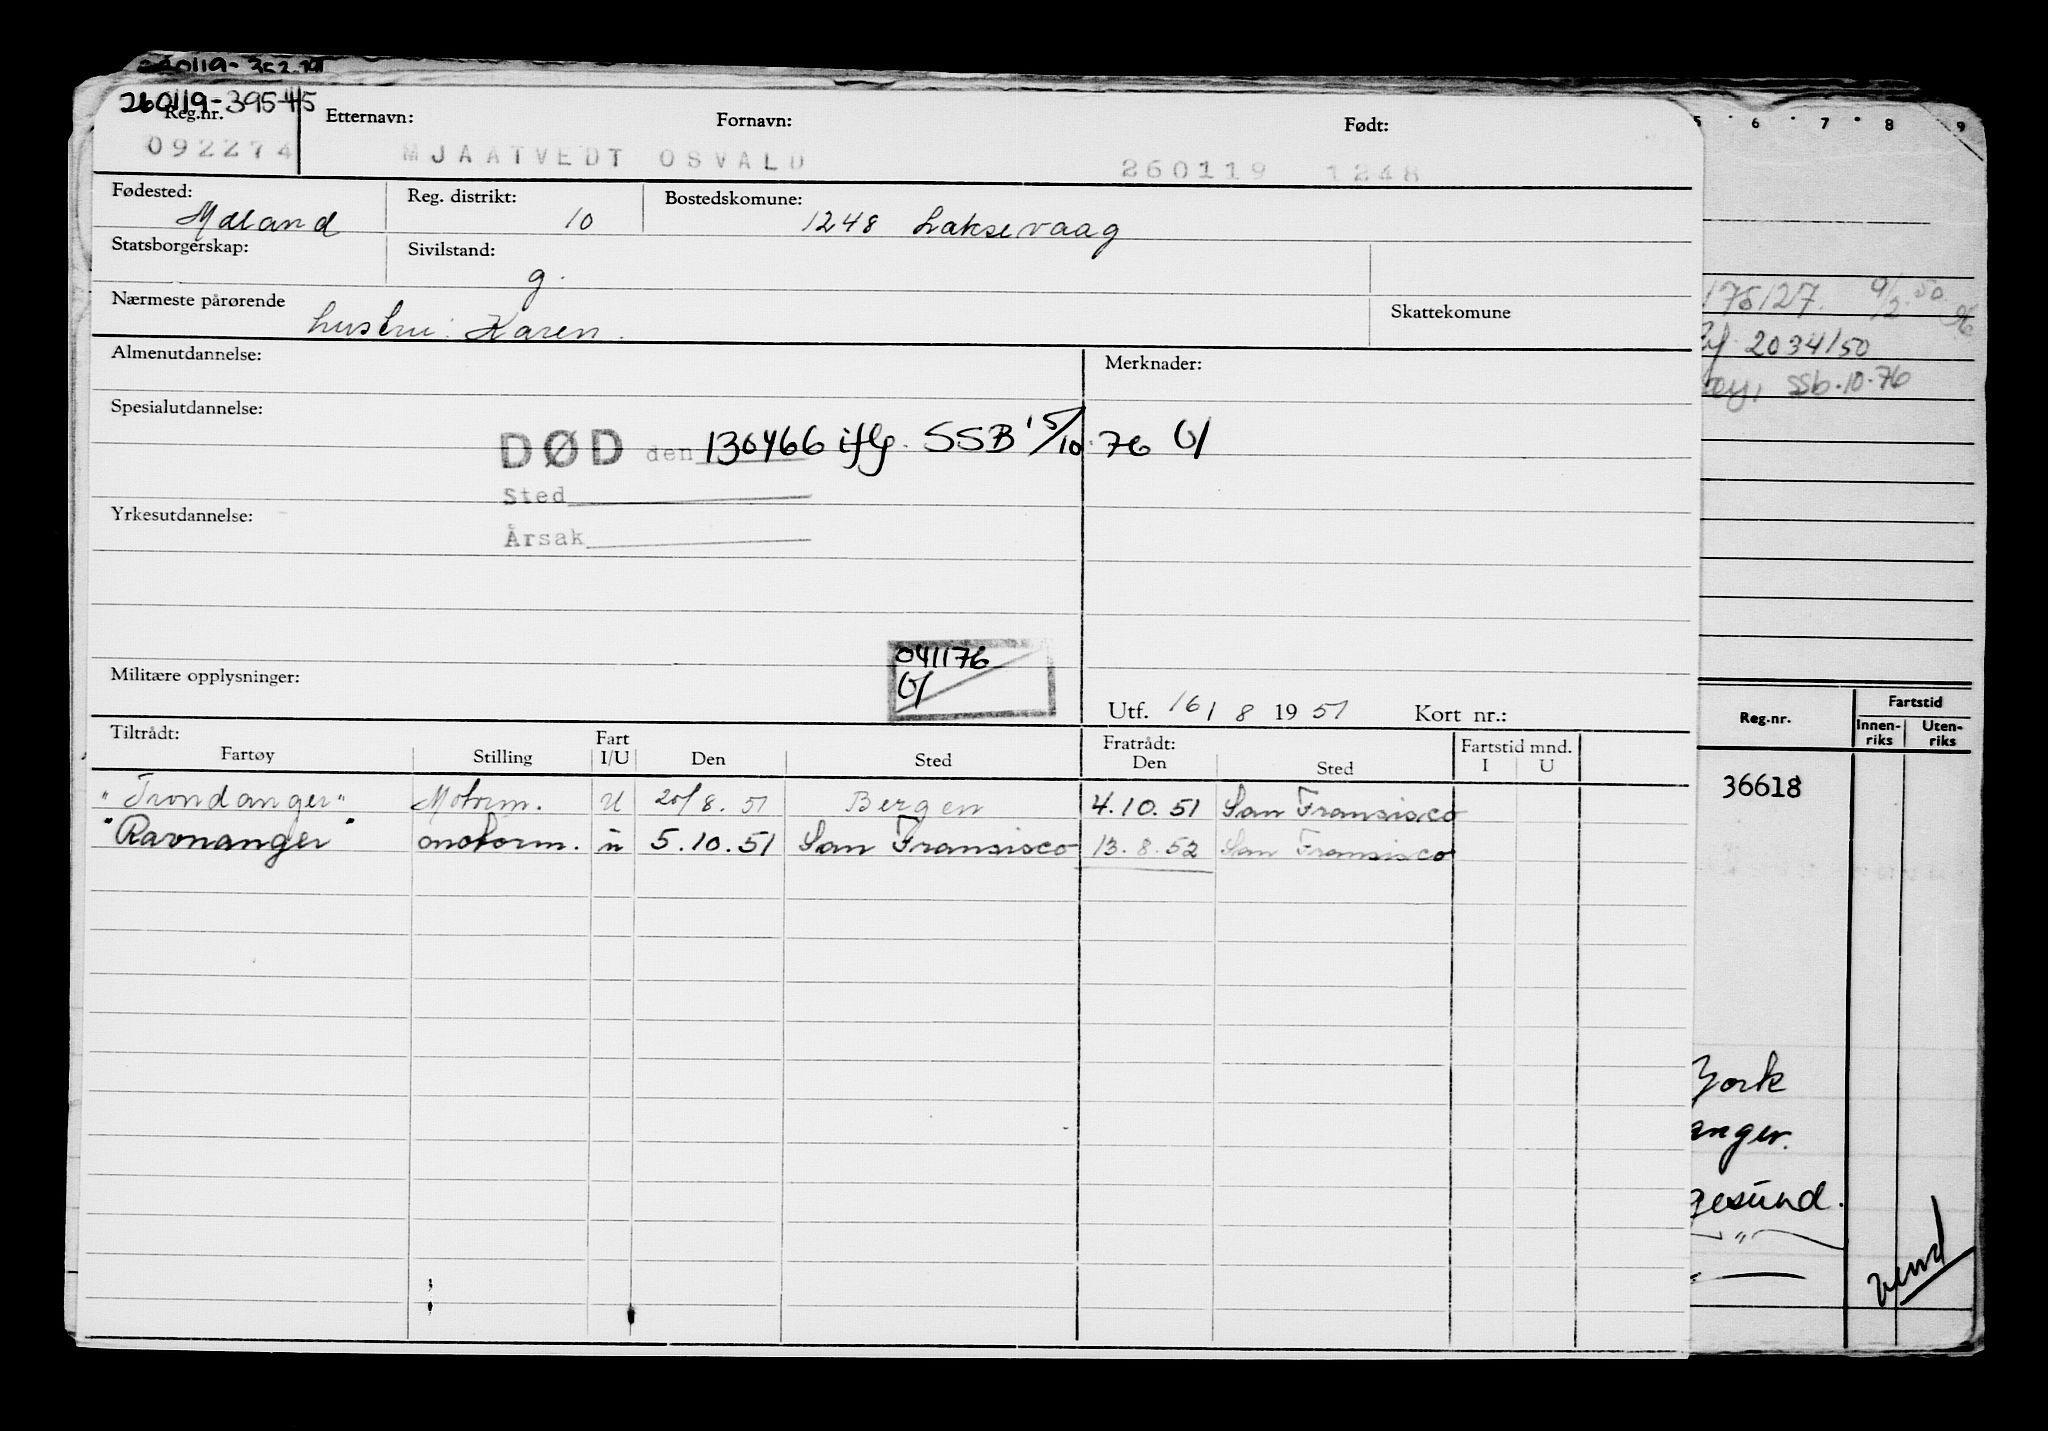 260119-395-45
Reg.nr. Etternavn: Fornavn: Født:
092274 MJAATVEDT OSVALD 260119 1248
Fødested: Reg. distrikt: Bostedskomune:
Mæland 10 1248 Laksevaag
Statsborgerskap: Sivilstand:
g.
Nærmeste pårørende Skattekomune
hustru: Karen.
Almenutdannelse: Merknader:
Spesialutdannelse:
DØD den 130466 iflg. SSB 15/10.76
Sted
Yrkesutdannelse:
Årsak
041176
Militære opplysninger:
Utf. 16/8 1951 Kort nr.:
Tiltrådt: Fratrådt: Fartstid mnd.
Fartøy Stilling Fart I/U Den Sted Den Sted I U
"Trondanger" Motorm. U 20/8.51 Bergen 4.10.51 San Fransisco
"Ravnanger" motorm. u 5.10.51 San Fransisco 13.8.52 San Fransisco
6 7 8 9
175127. 9/2.50
2034/50
ssb.10.76
Reg.nr. Fartstid
Innen-riks Uten-riks
36618
York
anger.
gesund.
"
vend